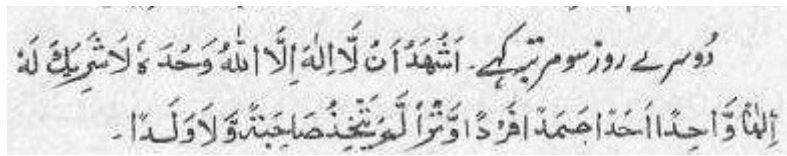 دُوسرے روز سو مرتبہ کہے۔ اَشْهَدُ اَنْ لَّا اِلٰهَ اِلَّا اللّٰهُ وَحْدَهٗ لَاشَرِيْكَ لَهٗ
اِلٰهًا وَّاحِدًا اَحَدًا صَمَدًا فَرْدًا وَّتْرًا لَّمْ يَتَّخِذْ صَاحِبَةً وَّلَا وَلَدًا۔